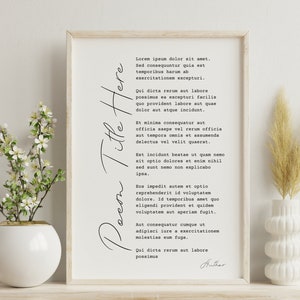 Poem Title Here
Lorem ipsum dolor sit amet.
Sed consequatur quia est
temporibus harum ab
exercitationem excepturi.
Qui dicta rerum aut labore
possimus ea excepturi facilis
quo provident labore aut quae
dolor atque incidunt.
Et minima consequatur aut
officiis omnis et cumque
provident cum exercitationem
voluptatem qui rerum syllables
Est incidunt beatae ut quam
nobis qui dolores et enim nihil
sed nemo non explicabo
ipsa.
Eus impedit autem et optio
reprehenderit id voluptatem
dolore. Id temporibus amet quo
eligendi provident et cumque
voluptatem qui aperiam fugit.
Aut consequatur cumque ut
adipisci iure a exercitationem
molestias eum fuga.
Qui dicta rerum aut labore
possimus
Author